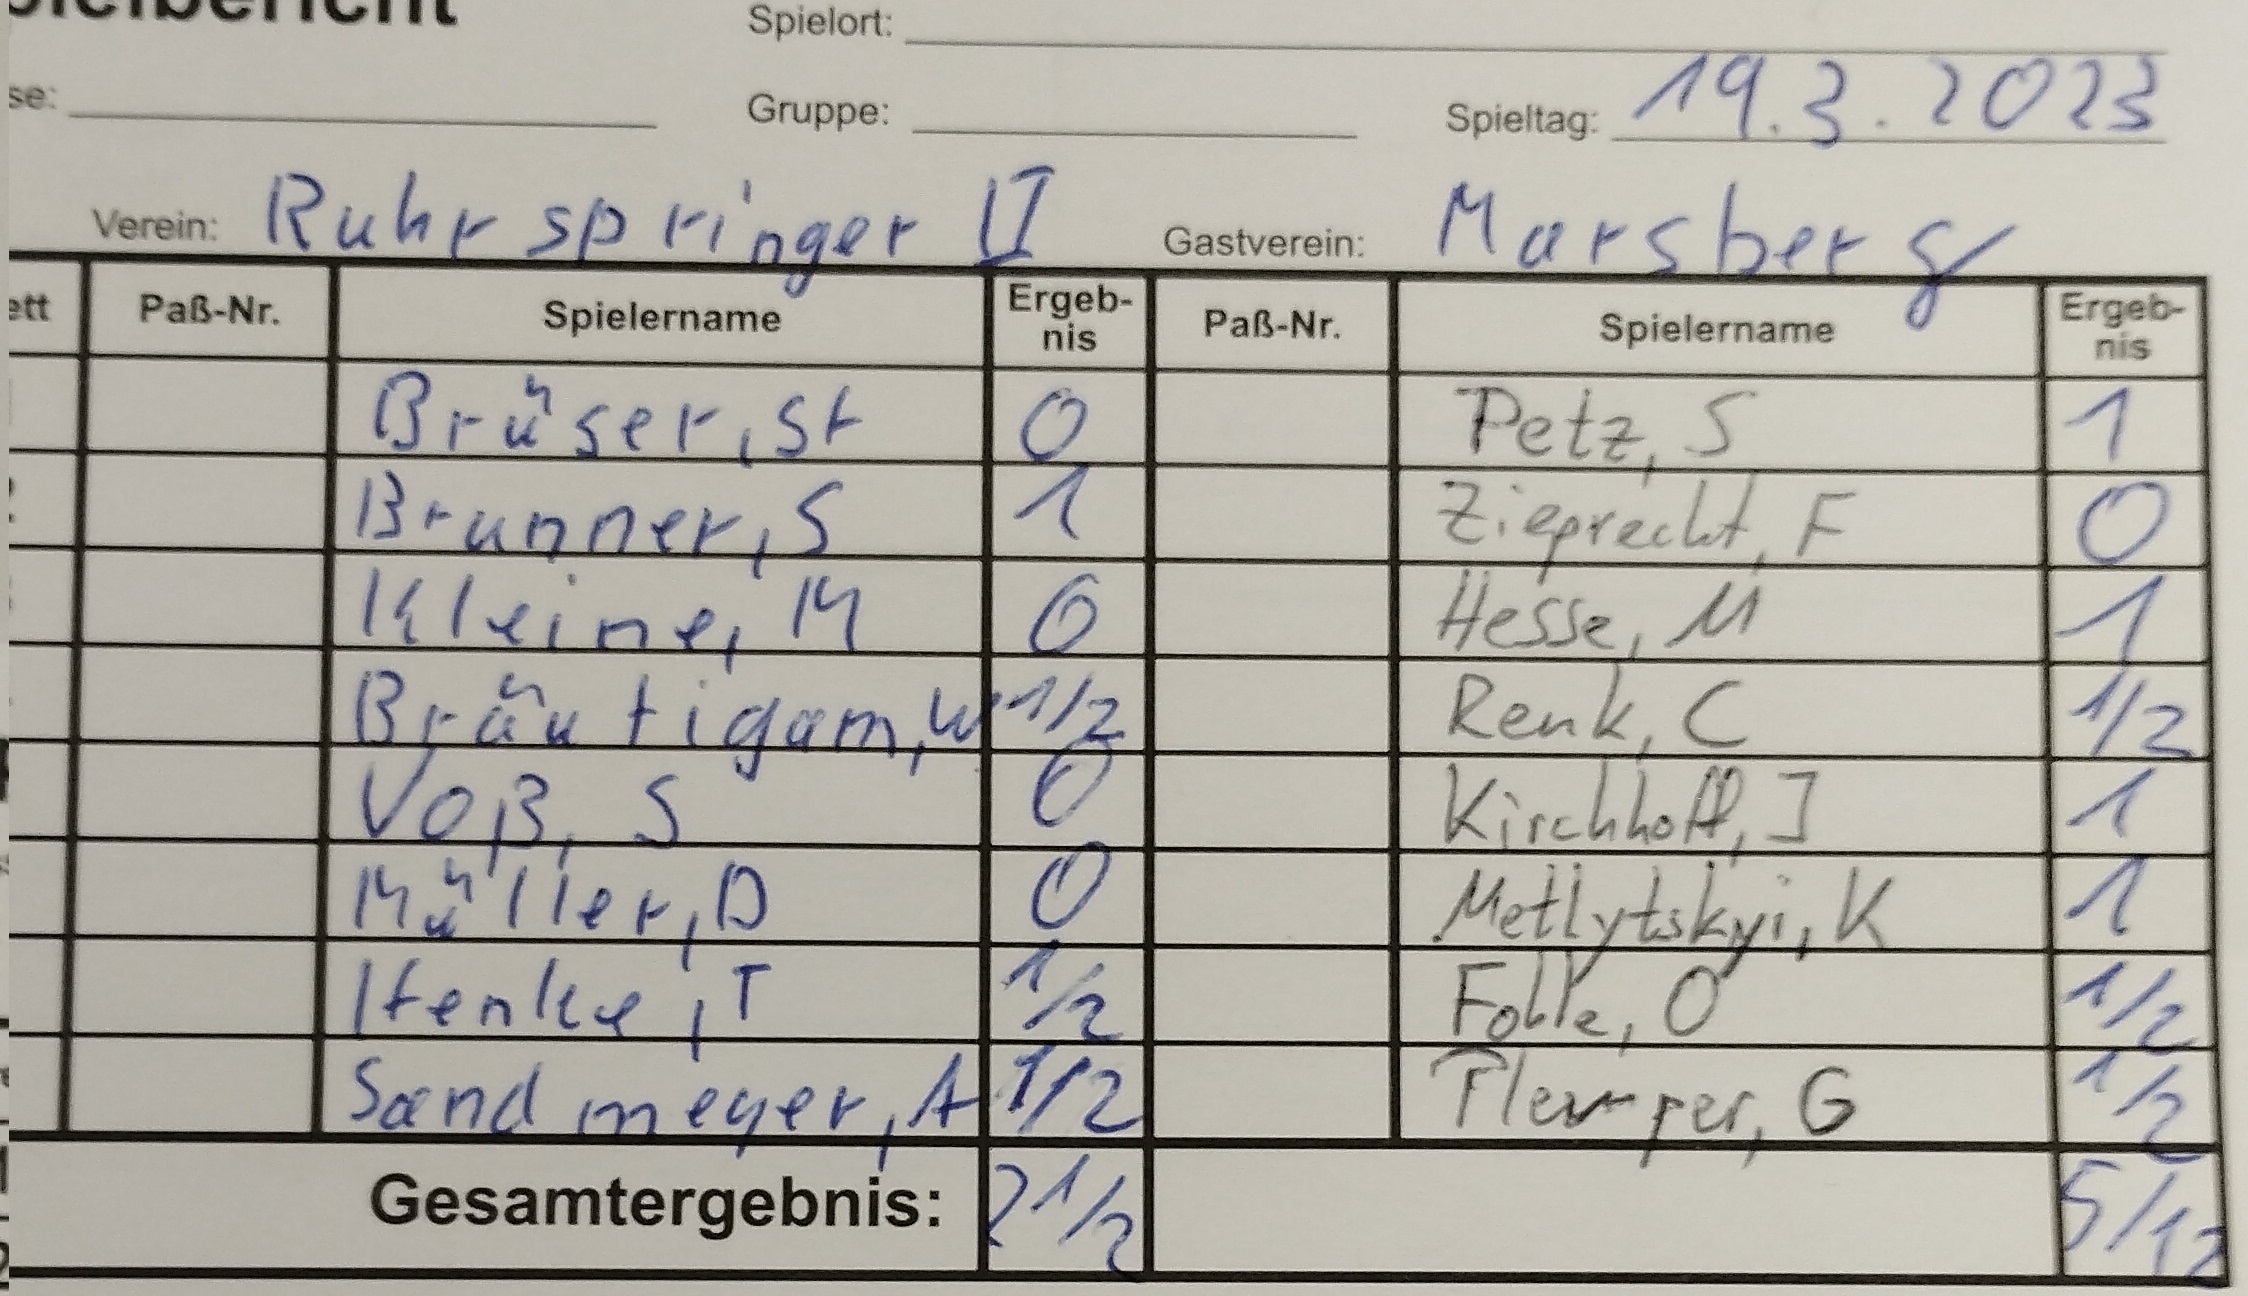 Spielort:
se:
Gruppe:
Spieltag: 19.3.2023
Verein: Ruhrspringer II Gastverein: Marsberg
ett Paß-Nr. Spielername Ergeb-nis Paß-Nr. Spielername Ergeb-nis
Brüser, St 0 Petz, S 1
Brunner, S 1 Zieprecht, F 0
Kleine, M 0 Hesse, M 1
Bräutigam, W 1/2 Renk, C 1/2
Voß, S 0 Kirchhoff, J 1
Müller, D 0 Metlytskyi, K 1
Henke, T 1/2 O 1/2
Sandmeyer, A 1/2 Plemper, G 1/2
Gesamtergebnis: 2 1/2 5 1/2